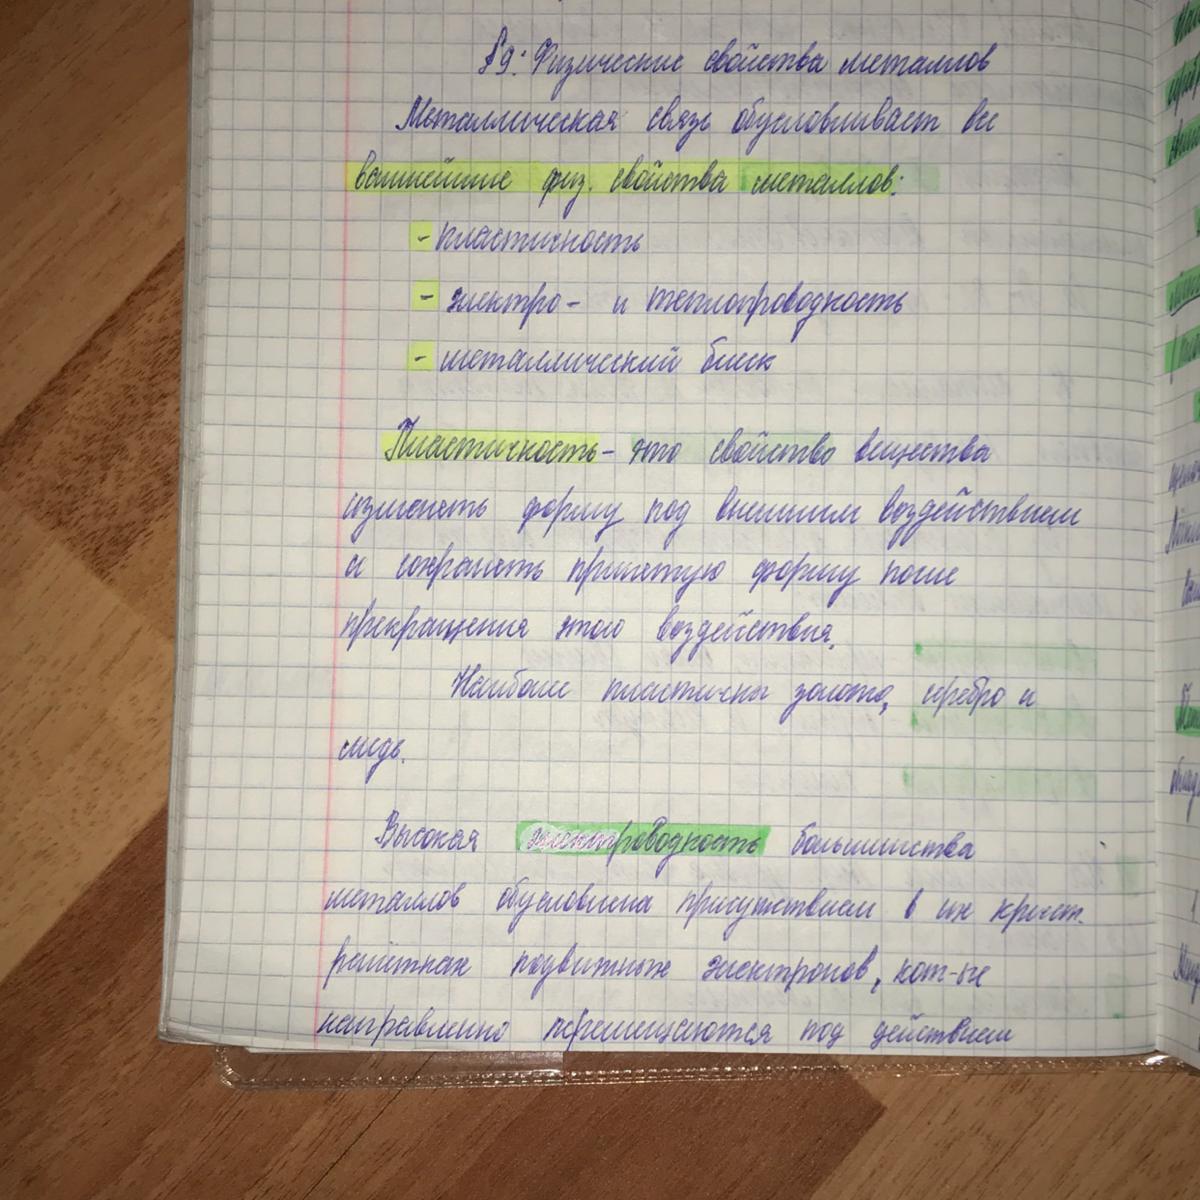 §9: Физические свойства металлов
Металлическая связь обусловливает все
важнейшие физ. свойства металлов:
- пластичность
- электро- и теплопроводность
- металлический блеск
Пластичность - это свойство вещества
изменять форму под внешним воздействием
и сохранять принятую форму после
прекращения этого воздействия.
Наиболее пластичны золото, серебро и
медь.
Высокая электропроводность большинства
металлов обусловлена присутствием в их крист.
решётках подвижных электронов, кот-ые
направленно перемещаются под действием